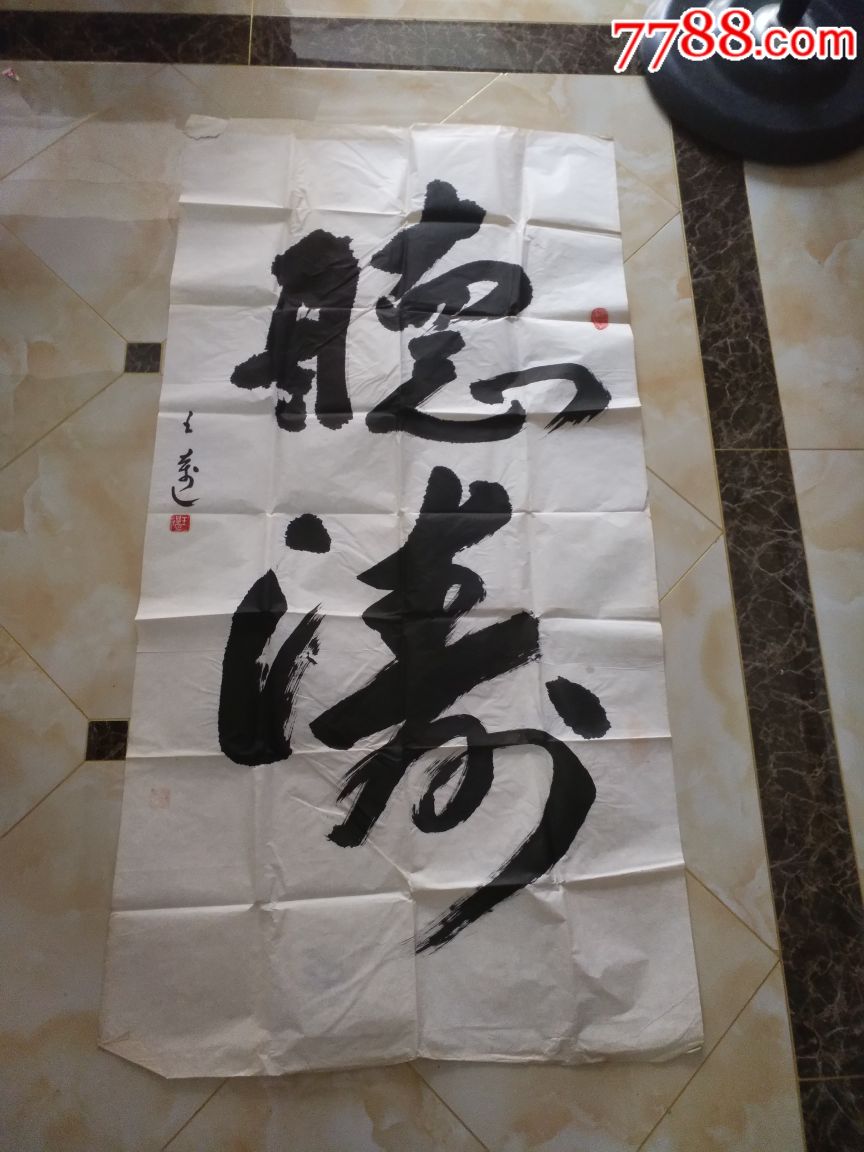 7788.com
聽濤